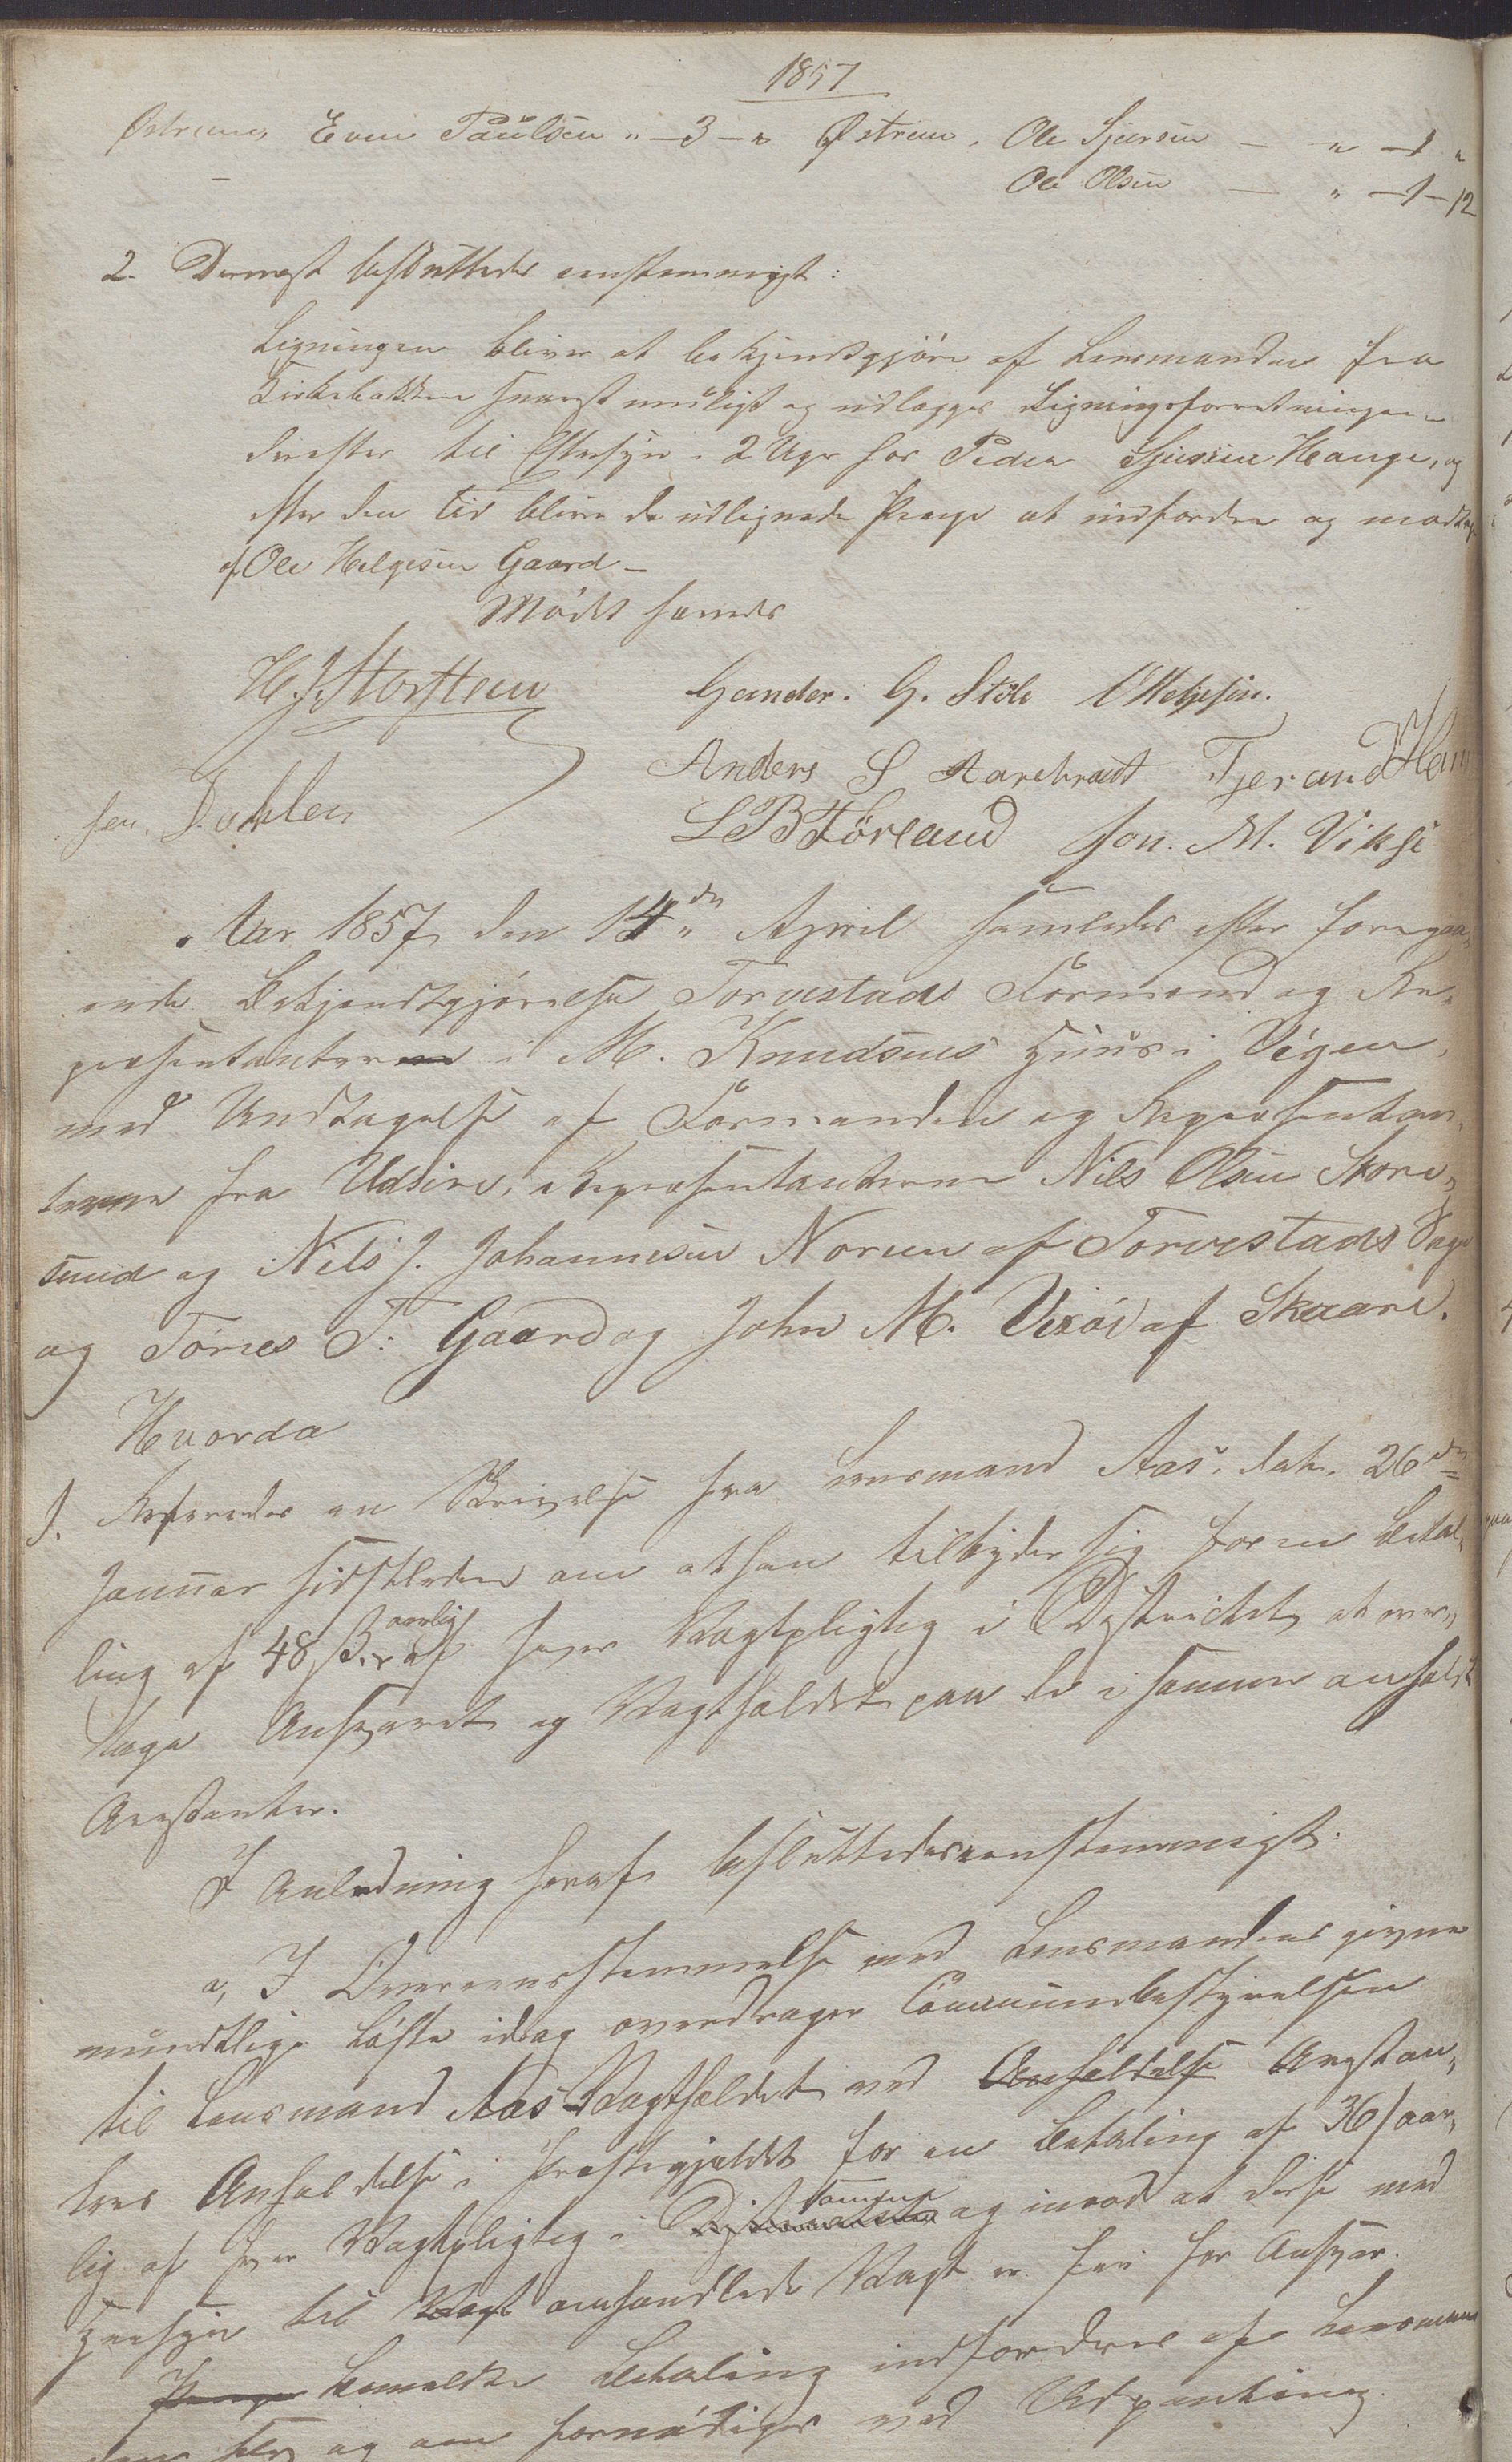 1857
Østrem, Even Paulsen " — 3 — " Østrem, Ole Sjursen — " — 1 "
— Ole Olsen — " — 1 — 12
2. Dernæst besluttedes eenstemmigt:
Ligningen bliver at bekjendtgjøre af Lensmanden fra
Kirkebakken snarest muligt og udlægges Ligningsforretningen
derefter til Eftersyn i 2 Uger hos Peder Sjursen Hauge, og
efter den Tid blive de udlignede Penge at indfordre og modtage
af Ole Helgesen Gaard —
Mødet hævedes
H. J. Storstein Gunder. G. Støle O Helgesen.
Anders S Aarekradt Tjerand
Dahlen L B Førland Jon. M. Vikse
Aar 1857 den 14de April samledes efter foregaa-
ende Bekjendtgjørelse Torvestads Formænd og Re-
præsentanter i M. Knudsens Huus i Vigen,
med Undtagelse af Formanden og Repræsentan-
terne fra Udsire, Repræsentanterne Nils Olsen Store-
sund og Nils J. Johannesen Noreim af Torvestads Sogn
og Tørres T. Gaard og John M. Vixøi af Skaare.
Hvorda
1. Refereredes en Skrivelse fra Lensmand Aas, dat. 26de
Januar sidstleden om at han tilbyder sig for en Betal-
ling af 48 ß. aarlig af hver Vagtpligtig i Distriktet at over-
tage Ansvaret og Vagtholdet paa de i samme anholdte
Arestanter.
I Anledning heraf besluttedes eenstemmigt:
a, I Overeensstemmelse med Lensmandens givne
mundtlige Løfte idag overdrager Communebestyrelsen
til Lensmand Aas Vagtholdet ved Anholdelse Arestan-
ters Anholdelse i Præstegjeldet for en Betaling af 36 ß aar-
lig af hver Vagtpligtig i samme og imod at disse med
Hensyn til Vagt omhandlede Vagt er fri for Ansvar.
Penge bemeldte Betaling indfordres af Lensman
den selv og om fornødiges ved Udpantning.